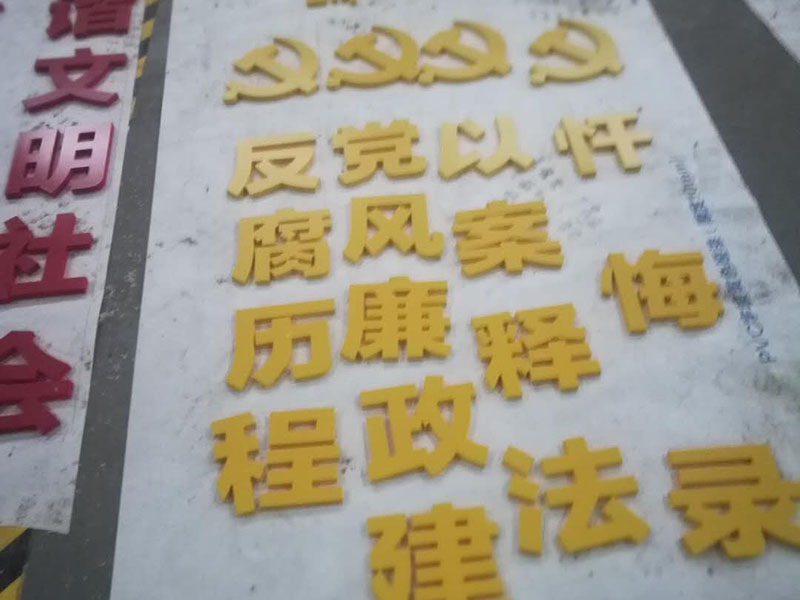 谐文明社会
反腐历程
党风廉政建
以案释法
忏悔录